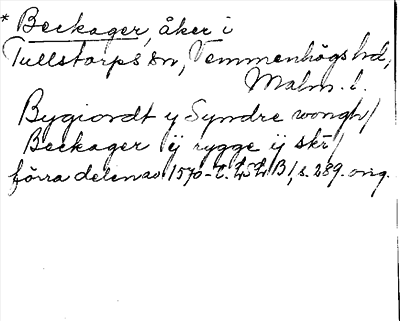 * Beckager, åker i
Tullstorps sn, Vemmenhögs hd,
Malm. l.
Bygiordt y Syndre wongh/
Beckager ij rygge ij skr/
förra delen av 1570-t. LSLB 1, s. 289. orig.